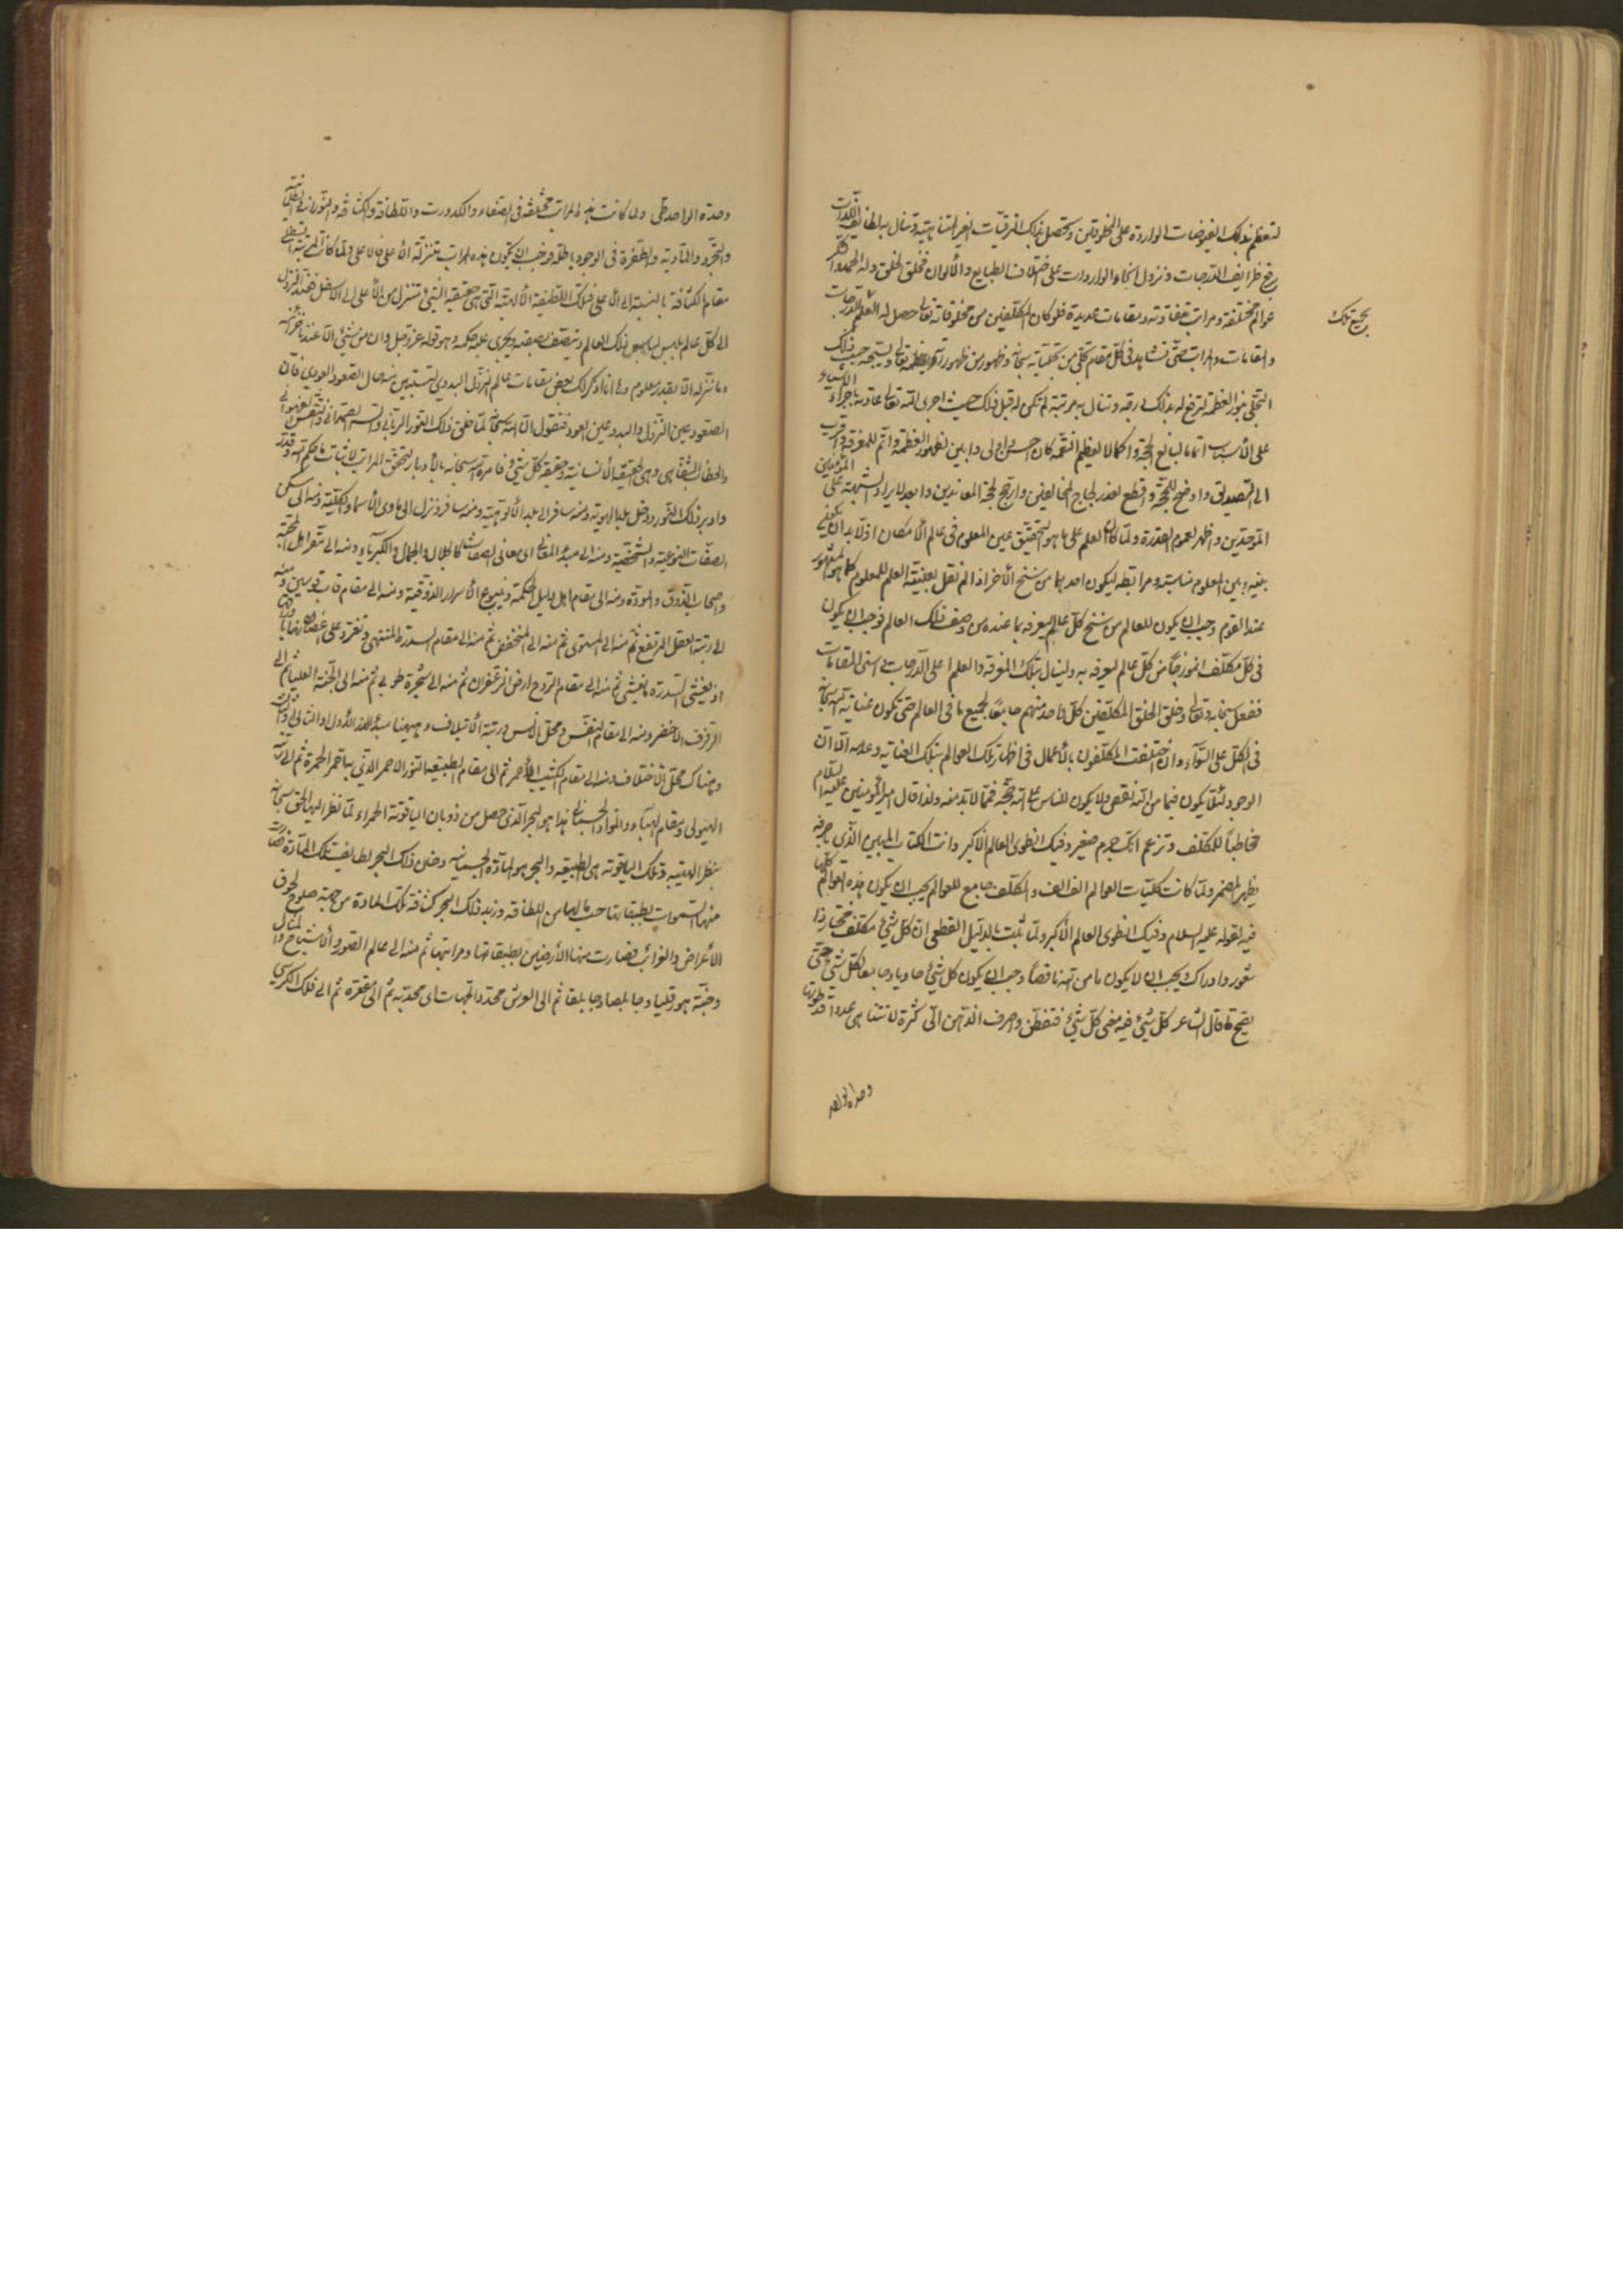 لتعظم بذلك الفيوضات الواردة على المخلوقين وتحصل بذلك الترقيات الغير المتناهية وتنال به لطايف اللذات
طرايف الدرجات ونزول انحاء الواردات على اختلاف الطبايع والألوان فخلق الخلق وله الحمد والشكر
عوالم مختلفة ومراتب متفاوتة ومقامات عديدة فلو كان المكلفين من مخلوقاته تعالى حصل له العلم
بجميع تلك
والمقامات والمراتب حتى تشاهد في كل مقام تجلي من تجلياته سبحانه وظهور من ظهورات تعالى ويستحق حسب ذلك
التجلي بنور العظمة لترفع له بذلك درجة وتنال به مرتبة لم تكن له قبل ذلك حيث اجرى الله تعالى عادته باجراء الأشياء
على الأسباب اتماما لبالغ الحجة واكمالا لعظيم النعمة كان احسن واولى وابين لظهور العظمة واتم للمعرفة واقرب
الى التصديق واوضح للحجة واقطع لعذر لجاج المخالفين وارجح لحجة المعاندين وابعد لايراد الشبهة على المؤمنين
الموحدين واظهر لعموم القدرة ولما كان العلم على ما هو التحقيق عين المعلوم في عالم الأمكان اولا بد ان يكون
بينه وبين المعلوم مناسبة ومرابطة ليكون احدهما من سنخ الأخر اذا لم نقل بعينية العلم للمعلوم كما هو المشهور
عند القوم وجب ان يكون للعالم من سنخ كل عالم ليعرفه بما عنده من وصف ذلك العالم فوجب ان يكون
في كل مكلف انموزجا من كل عالم ليعرفه به ولينال بتلك المعرفة والعلم اعلى الدرجات واسنى المقامات
ففعل سبحانه وتعالى وخلق الخلق المكلفين كل واحد منهم جامعا لجميع ما في العالم حتى تكون عناية الله سبحانه
في الكل على السواء وان اختلفت المكلفون بالأعمال في اظهار تلك العوالم بتلك العناية وعدمه الا ان
الوجود لئلا يكون فيما من الله نقص ولا يكون للناس على الله حجة فيما لا بد منه ولذا قال امير المؤمنين عليه السلام
مخاطبا للمكلف وتزعم انك جرم صغير وفيك انطوى العالم الأكبر وانت الكتاب المبين الذي باحرفه
يظهر المضمر ولما كانت كليات العوالم الف الف والمكلف جامع للعوالم يجب ان يكون هذه العوالم كلها
فيه لقوله عليه السلام وفيك انطوى العالم الأكبر ولما ثبت بالدليل القطعي ان كل شيء مكلف مختار ذا
شعور وادراك ويجب ان لا يكون ما من الله ناقصا وجب ان يكون كل شيء حاويا وجامعا لكل شيء حتى
يصح ما قال الشاعر كل شيء فيه معنى كل شيء فتفطن واصرف الذهن الى كثرة لا تتناهى عددا قد طوتها
وحدة الواحد
وحدة الواحد طي ولما كانت هذه المراتب مختلفة في الصفاء والكدورت واللطافة والكثافة والنورانية والظلمانية
والتجرد والمادية والطفرة في الوجود باطلة وجب ان يكون هذه المراتب متنزلة الأعلى فالاعلى ولما كانت المرتبة السفلى
مقام الكثافة بالنسبة الى الأعلى فتلك اللطيفة الألهية التي هي حقيقة الشيء تتنزل من الأعلى الى الأسفل فعند النزول
الى كل عالم يلبس لباس ذلك العالم ويتصف بصفته ويجرى عليه حكمه وهو قوله عز وجل وان من شيء الا عندنا خزائنه
وما ننزله الا بقدر معلوم وها انا اذكر لك بعض مقامات عالم النزول البدوي لتستبين منه حال الصعود العودي فان
الصعود عين النزول والبدو عين العود فنقول ان الله سبحانه لما خلق ذلك النور الرباني والسر الصمداني
والخطاب الشفاهي وهي الحقيقة الأنسانية وحقيقة كل شيء فامره الله سبحانه بالأدبار لتحقق المراتب لاثبات ما حكم الله وقدر
وادبر ذلك النور ودخل بلد الهوية ومنه سافر الى بلد الألوهية ومنه سافر ونزل الى ماوى الأسماء الكلية ومنه الى مسكن
الصفات النوعية والشخصية ومنه الى مبدء المعاني اى معاني الصفات كالجلال والجمال والكبرياء ومنه الى مقر اهل المحبة
واصحاب الذوق والمودة ومنه الى مقام اهل دليل الحكمة وينبوع الأسرار الذوقية ومنه الى مقام قاب قوسين ومنه
الى رتبة العقل المرتفع ثم منه الى المستوى ثم منه الى المنخفض ثم منه الى مقام السدرة المنتهى وتغرد على اغصانها
اذ يغشى السدرة ما يغشى ثم منه الى مقام الروح ارض الزعفران ثم منه الى شجرة طوبى ثم منه الى الجنة العليا ثم الى
الرفرف الاخضر ومنه الى مقام النفس ومحل الانس ورتبة الأتيلاف وههنا مبدء الذر الأول او الثاني او الثالث
وهناك محل الأختلاف ومنه الى مقام الكثيب الأحمر ثم الى مقام الطبيعة النور الاحمر الذي منه احمر الحمرة ثم الى رتبة
الهيولى ومقام الهباء والمواد الجسمانية هذا هو البحر الذي حصل من ذوبان الياقوتة الحمراء لما نظر اليها الحق سبحانه
بنظر الهيبة وتلك الياقوتة هي الطبيعة والبحر هو المادة الجسمانية ودخان ذلك البحر لطايف تلك المادة فصارت
منها السموات بطبقاتها حسب ما لها من اللطافة وزبد ذلك البحر كثافة تلك المادة من جهة صلوح لحوق
الأعراض والغرائب فصارت منها الأرضين بطبقاتها ومراتبها ثم منه الى عالم الصور والأشباح والمثال
وجنة هورقليا وجابلصا وجابلقا ثم الى العرش محدد الجهات اى محدبه ثم الى مقعره ثم الى فلك الكرسي